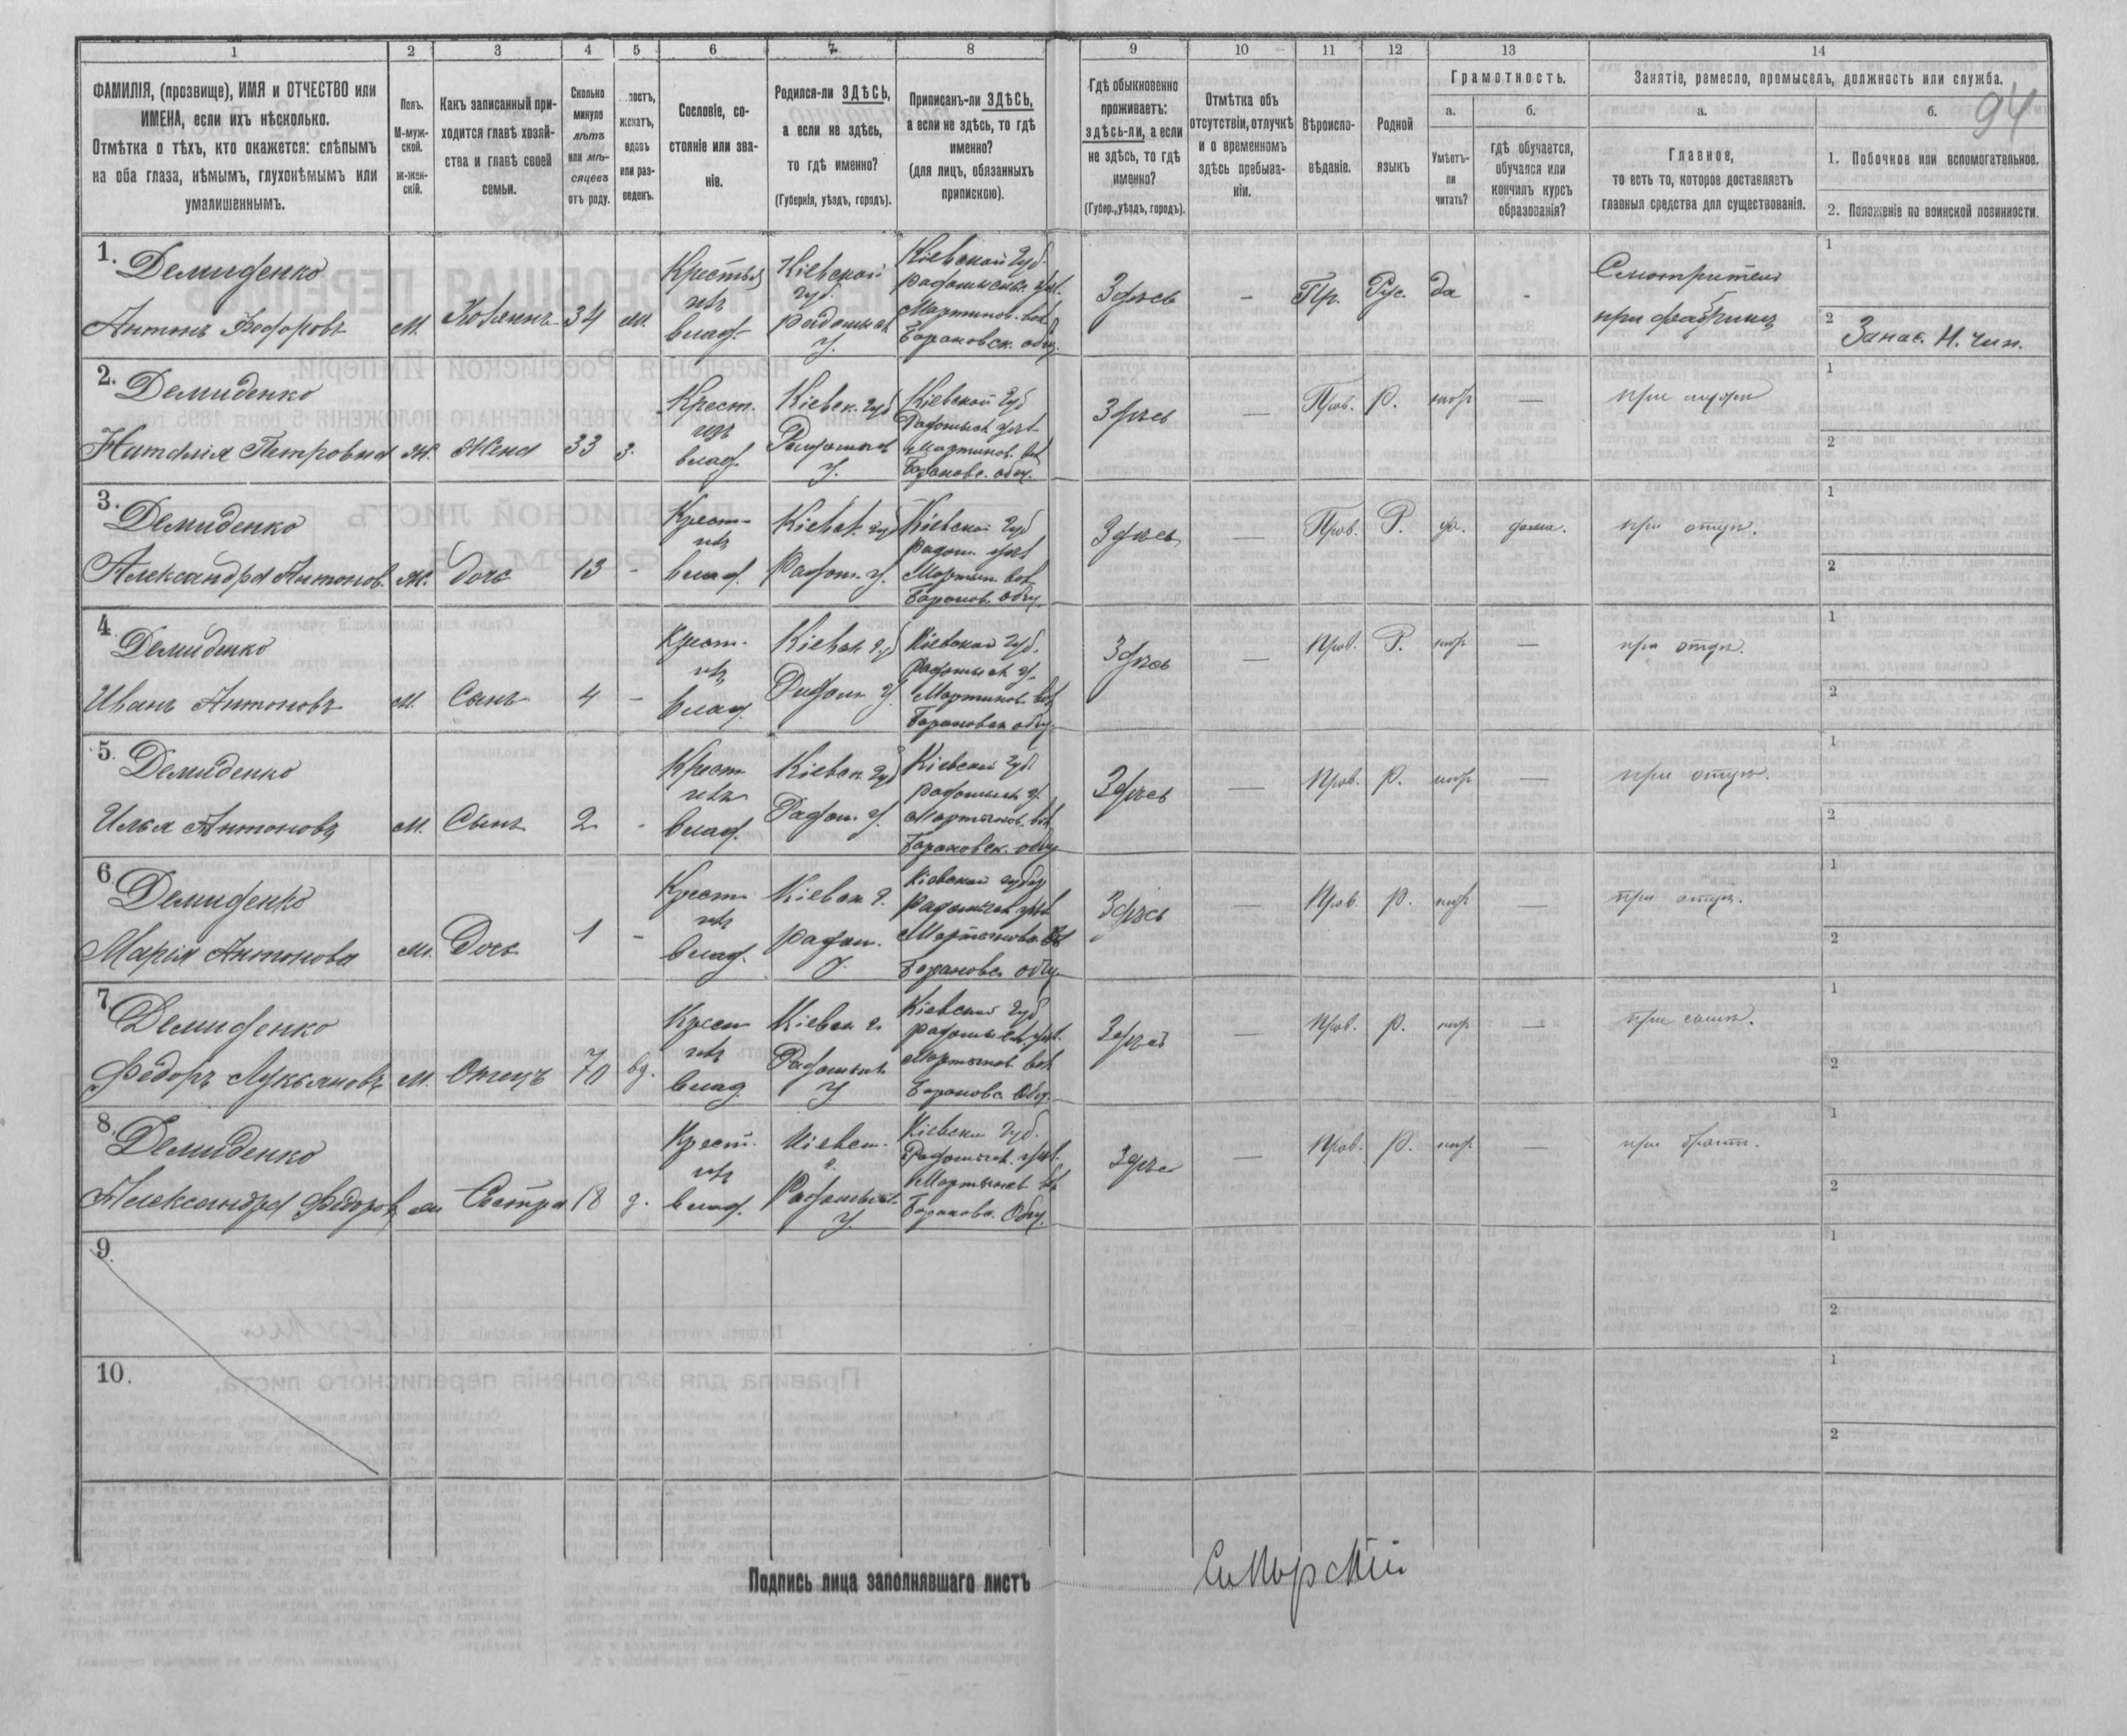 1 2 3 4 5 6 7 8 9 10 11 12 13 14
ФАМИЛІЯ, (прозвище), ИМЯ и ОТЧЕСТВО или
ИМЕНА, если ихъ нѣсколько.
Отмѣтка о тѣхъ, кто окажется: слѣпымъ
на оба глаза, нѣмымъ, глухонѣмымъ или
умалишеннымъ.
Полъ.
М-муж-
ской.
Ж-жен-
скій.
Какъ записанный при-
ходится главѣ хозяй-
ства и главѣ своей
семьи.
Сколько
минуло
лѣтъ
или мѣ-
сяцевъ
отъ роду.
лостъ,
женатъ,
вдовъ
или раз-
веденъ.
Сословіе, со-
стояніе или зва-
ніе.
Родился-ли ЗДѢСЬ,
а если не здѣсь,
то гдѣ именно?
(Губернія, уѣздъ, городъ).
Приписанъ-ли ЗДѢСЬ,
а если не здѣсь, то гдѣ
именно?
(для лицъ, обязанныхъ
припискою).
Гдѣ обыкновенно
проживаетъ:
здѣсь-ли, а если
не здѣсь, то гдѣ
именно?
(Губер., уѣздъ, городъ).
Отмѣтка объ
отсутствіи, отлучкѣ
и о временномъ
здѣсь пребыва-
ніи.
Вѣроиспо-
вѣданіе.
Родной
языкъ
Грамотность.
а.
Умѣетъ-
ли
читать?
б.
гдѣ обучается,
обучался или
кончилъ курсъ
образованія?
Занятіе, ремесло, промыселъ, должность или служба.
а.
Главное,
то есть то, которое доставляетъ
главныя средства для существованія.
б.
94
1. Побочное или вспомогательное.
2. Положеніе по воинской повинности.
1. Демиденко
Антонъ Федоровъ М. Хозяинъ 34 м.
Крестья
изъ
влад.
Кіевской
губ.
Радомысл
у.
Кіевской Губ.
Радомысльс. уѣз.
Мартинов. вол
Барановск. общ.
Здѣсь - Пр. Рус. да -
Смотритель
при фабрикѣ
1
2 Запас. Н. чин.
2. Демиденко
Наталія Петровна Ж. Жена 33 з.
Крест.
изъ
влад.
Кіевск. губ
Радомысл
у.
Кіевской Губ
Радомысл уѣз
Мартинов. вол
Баранов. общ.
Здѣсь — Прав. Р. — при мужѣ
1
2
3. Демиденко
Александра Антонов. Ж. Дочь 13 -
Крест
изъ
влад.
Кіевск. губ
Радом. у.
Кіевской Губ
Радом. уѣз
Мартын. вол
Баранов. общ.
Здѣсь — Прав. Р. да. дома. при отцѣ.
1
2
4. Демиденко
Иванъ Антоновъ М. Сынъ 4 -
Крест.
изъ
влад.
Кіевск. губ
Радом. у.
Кіевской Губ.
Радомысл у.
Мартинов. вол
Барановск общ.
Здѣсь — Прав. Р. — при отцѣ.
1
2
5. Демиденко
Илья Антоновъ М. Сынъ 2 -
Крест
изъ
влад.
Кіевск. Губ
Радом. у.
Кіевской Губ
Радомысл у.
Мартынов. вол
Барановск. общ
Здѣсь — Прав. Р. — при отцѣ.
1
2
6. Демиденко
Марія Антонова М. Дочь 1 -
Крест
изъ
влад.
Кіевск г.
Радом.
у.
Кіевской губер
Радомысл уѣз
Мартынов. вол
Барановс. общ.
Здѣсь — Прав. Р. — при отцѣ.
1
2
7. Демиденко
Федоръ Лукьяновъ М. Отецъ 70 вд.
Крест
изъ
влад
Кіевск г.
Радомысл
у
Кіевской Губ
Радомысл. уѣз.
Мартынов вол
Барановс. Общ.
Здѣсь — Прав. Р. — при сынѣ.
1
2
8. Демиденко
Александра Федоров Сестра 18 д.
Крест.
изъ
влад.
Кіевск.
г.
Радомысл.
у.
Кіевской Губ.
Радомысл. уѣз.
Мартынов. вол
Баранова. Общ.
Здѣсь — Прав. Р. — при братѣ.
1
2
9.
1
2
10.
1
2
Подпись лица заполнявшаго листъ